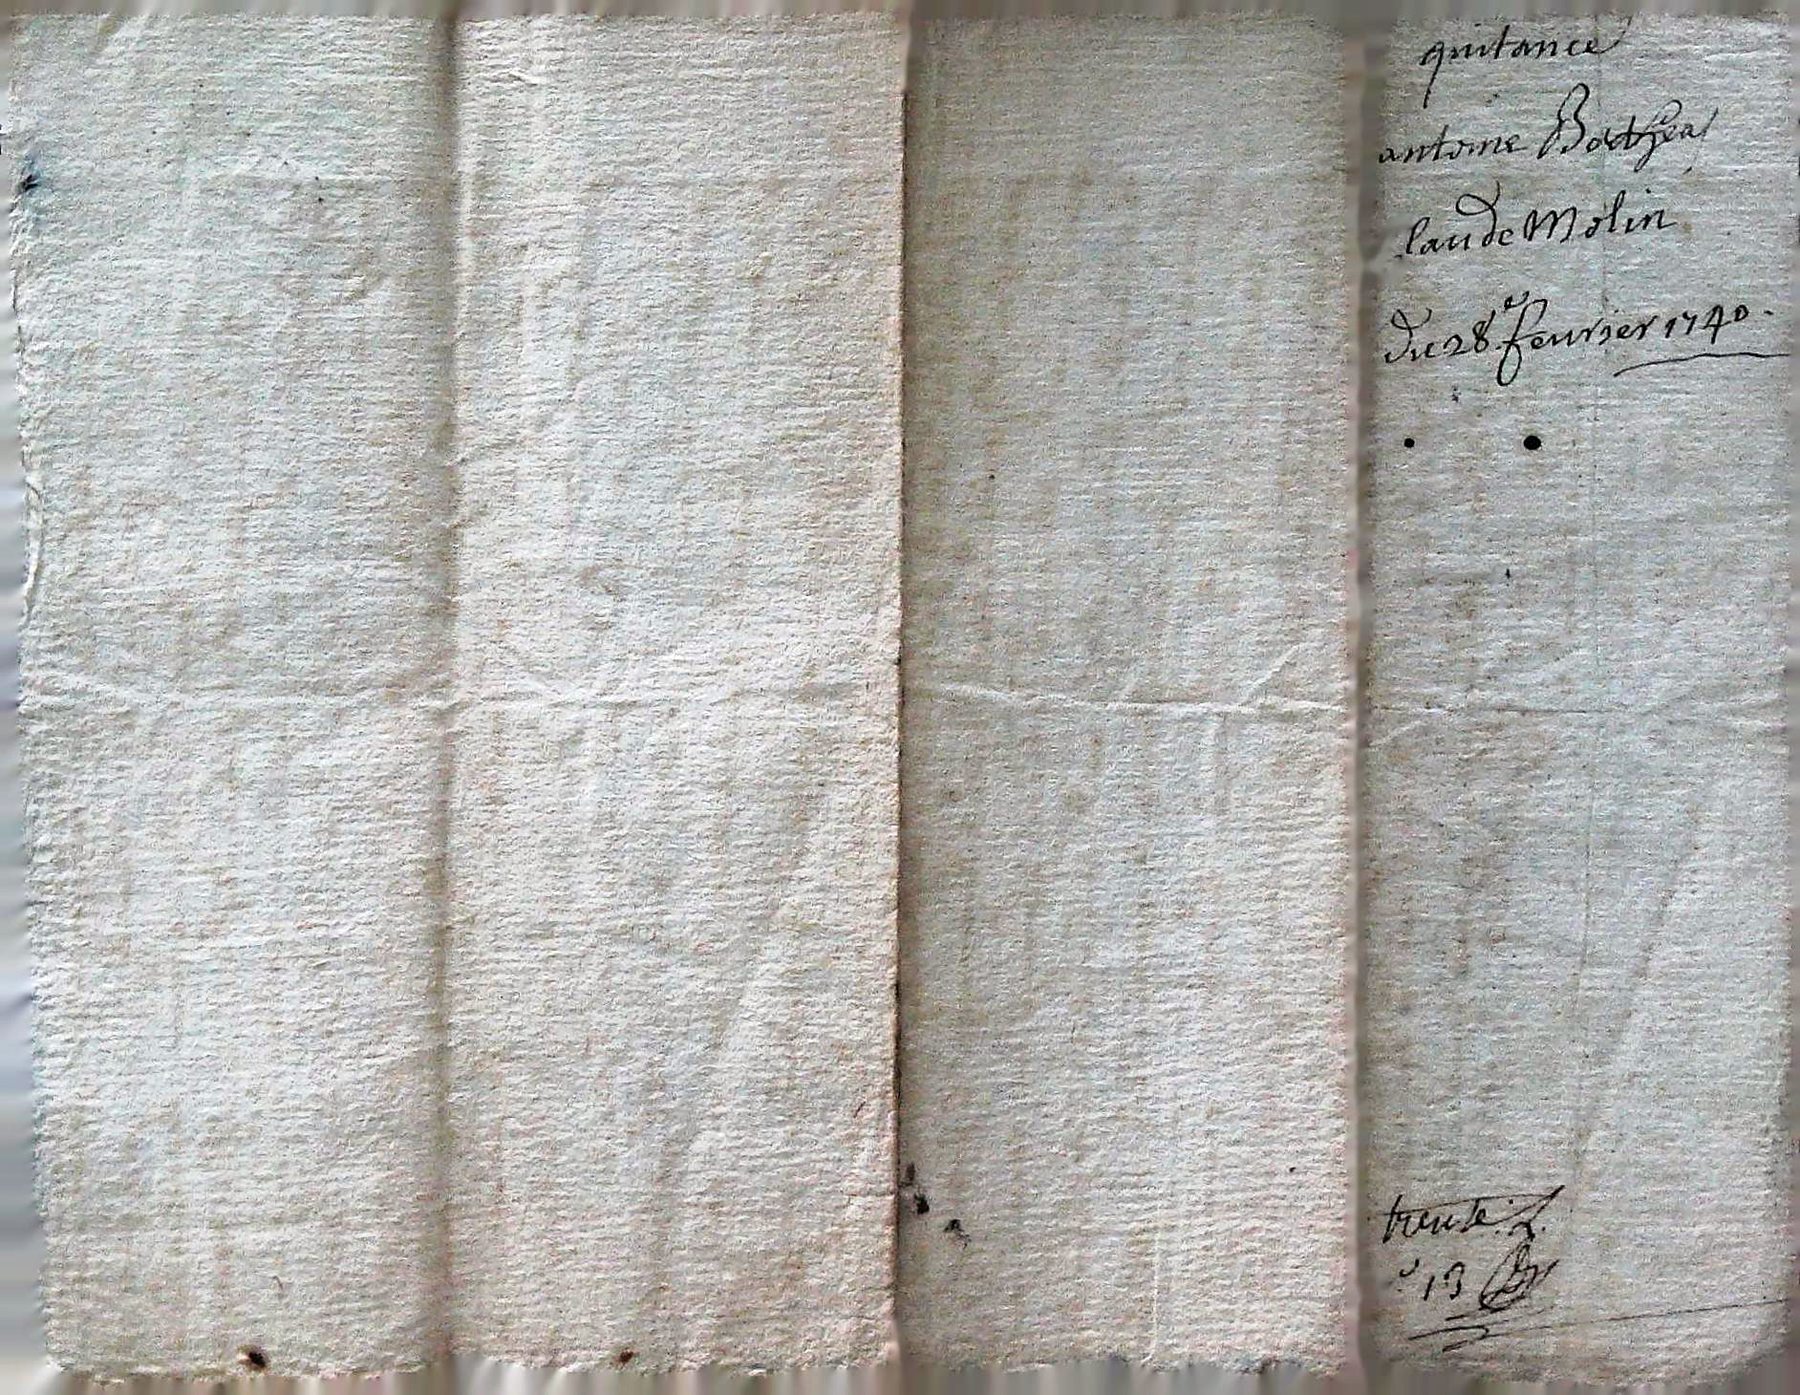 quitance
antoine
laude Molin
du 28e fevrier 1740.
trente L.
13